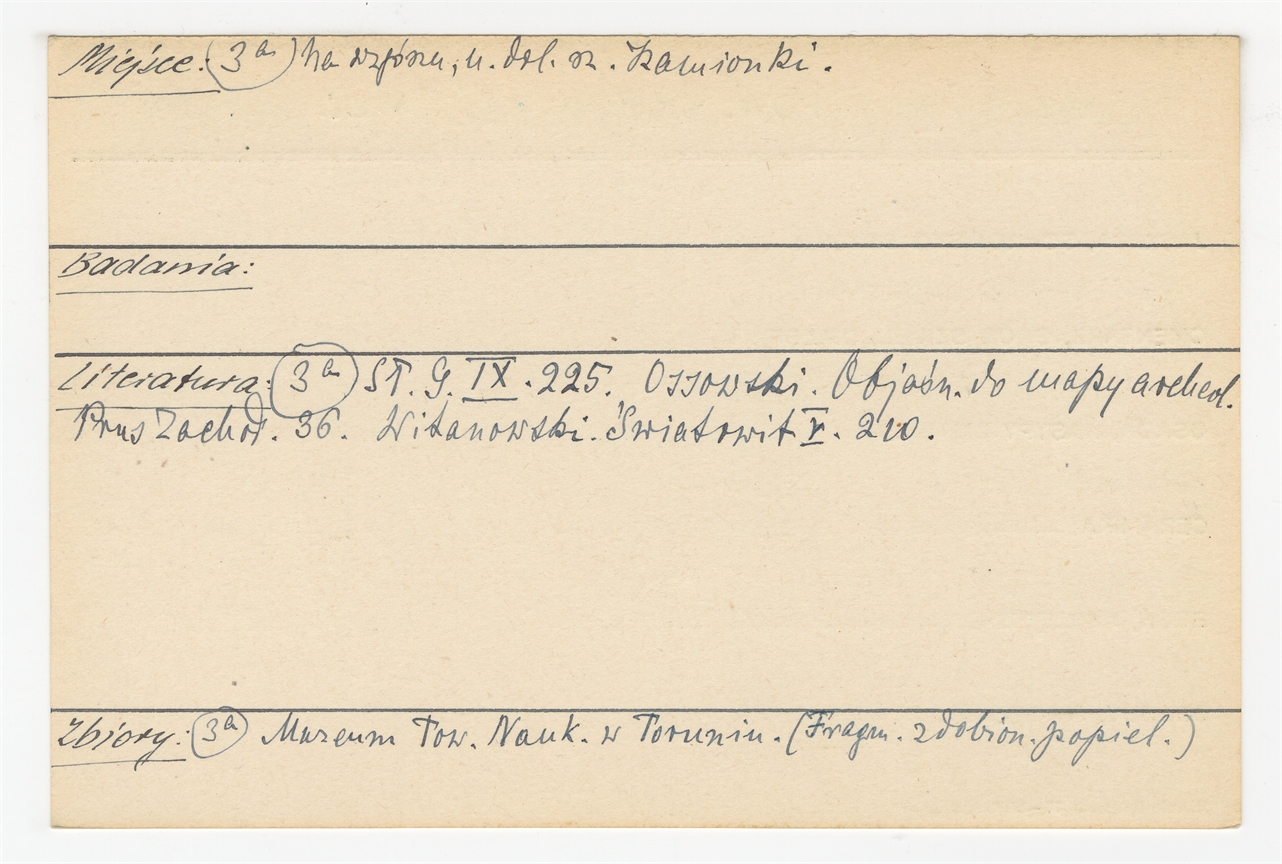 Miejsce: (3a) Na wzgórzu, n. dol. rz. Kamionki.
Badania:
Literatura: (3a) St. G. IX. 225. Ossowski. Objaśn. do mapy archeol.
Prus Zachod. 36. Witanowski. Światowit V. 210.
Zbiory: (3a) Muzeum Tow. Nauk. w Toruniu. (Fragm. zdobion. popiel.)